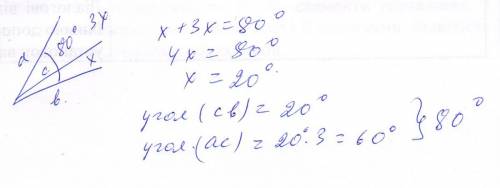 a
80° 3x
c x
b.
x + 3x = 80°
4x = 80°
x = 20°.
угол (cb) = 20°
угол.(ac) = 20°·3 = 60° } 80°